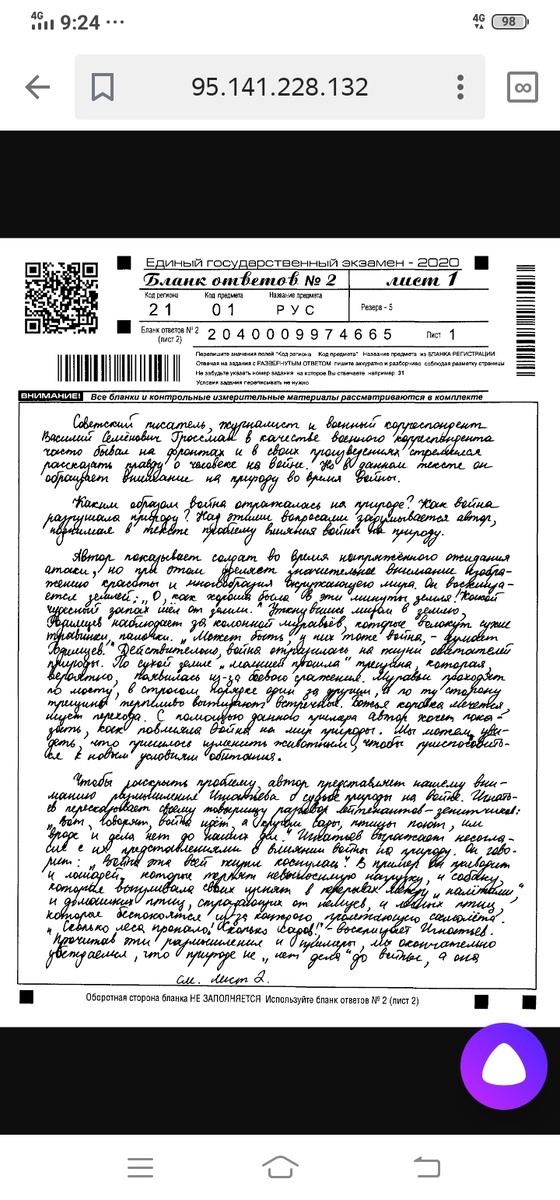 4G 9:24 ··· 4G 98
95.141.228.132
Единый государственный экзамен - 2020
Бланк ответов № 2 лист 1
Код региона Код предмета Название предмета
21 01 РУС Резерв - 5
Бланк ответов № 2 (лист 2) 2040009974665 Лист 1
Перепишите значения полей "Код региона" "Код предмета" "Название предмета" из БЛАНКА РЕГИСТРАЦИИ
Отвечая на задания с РАЗВЕРНУТЫМ ОТВЕТОМ пишите аккуратно и разборчиво соблюдая разметку страницы
Не забудьте указать номер задания на которое Вы отвечаете например 31
Условия задания переписывать не нужно
ВНИМАНИЕ! Все бланки и контрольные измерительные материалы рассматриваются в комплекте
Советский писатель, журналист и военный корреспондент
Василий Семёнович Гроссман в качестве военного корреспондента
часто бывал на фронтах и в своих произведениях стремился
рассказать правду о человеке на войне. Но в данном тексте он
обращает внимание на природу во время войны.
Каким образом война отражалась на природе? Как война
разрушала природу? Над этими вопросами задумывается автор,
поднимая в тексте проблему влияния войны на природу.
Автор показывает солдат во время напряжённого ожидания
атаки, но при этом уделяет значительное внимание изобра-
жению красоты и многообразия окружающего мира. Он восхища-
ется землёй: „О, как хороша была в эти минуты земля! Какой
чудесный запах шёл от земли." Уткнувшись лицом в землю,
Родимцев наблюдает за колонной муравьёв, которые волокут сухие
травинки, палочки. „Может быть, у них тоже война, - думает
Родимцев." Действительно, война отразилась на жизни обитателей
природы. По сухой земле „молнией прошла" трещина, которая,
вероятно, появилась из-за боевого сражения. Муравьи проходят
по мосту, в строгом порядке один за другим, а по ту сторону
трещины терпеливо выжидают встречные. Божья коровка мечется,
ищет перехода. С помощью данного примера автор хочет пока-
зать, как повлияла война на мир природы. Мы можем уви-
деть, что пришлось изменить животным, чтобы приспособить-
ся к новым условиям обитания.
Чтобы раскрыть проблему, автор представляет нашему вни-
манию размышления Игнатьева о судьбе природы на войне. Игнать-
ев пересказывает своему товарищу разговор лейтенантов-зенитчиков:
„Вот, говорят, война идёт, а кругом сады, птицы поют, им
вроде и дела нет до наших дел." Игнатьев выражает несогла-
сие с их представлениями о влиянии войны на природу. Он гово-
рит: „Война эта всей жизни коснулась". В пример он приводит
и лошадей, которые терпят невыносимую нагрузку, и собаку,
которая выгуливала своих щенят в перерывах между „налётами",
и домашних птиц, страдающих от немцев, и лесных птиц,
которые беспокоятся из-за каждого пролетающего самолёта.
„Сколько леса пропало! Сколько садов!" - восклицает Игнатьев.
Прочитав эти размышления и примеры, мы окончательно
убеждаемся, что природе не „нет дела" до войны, а она
см. лист 2.
Оборотная сторона бланка НЕ ЗАПОЛНЯЕТСЯ Используйте бланк ответов № 2 (лист 2)